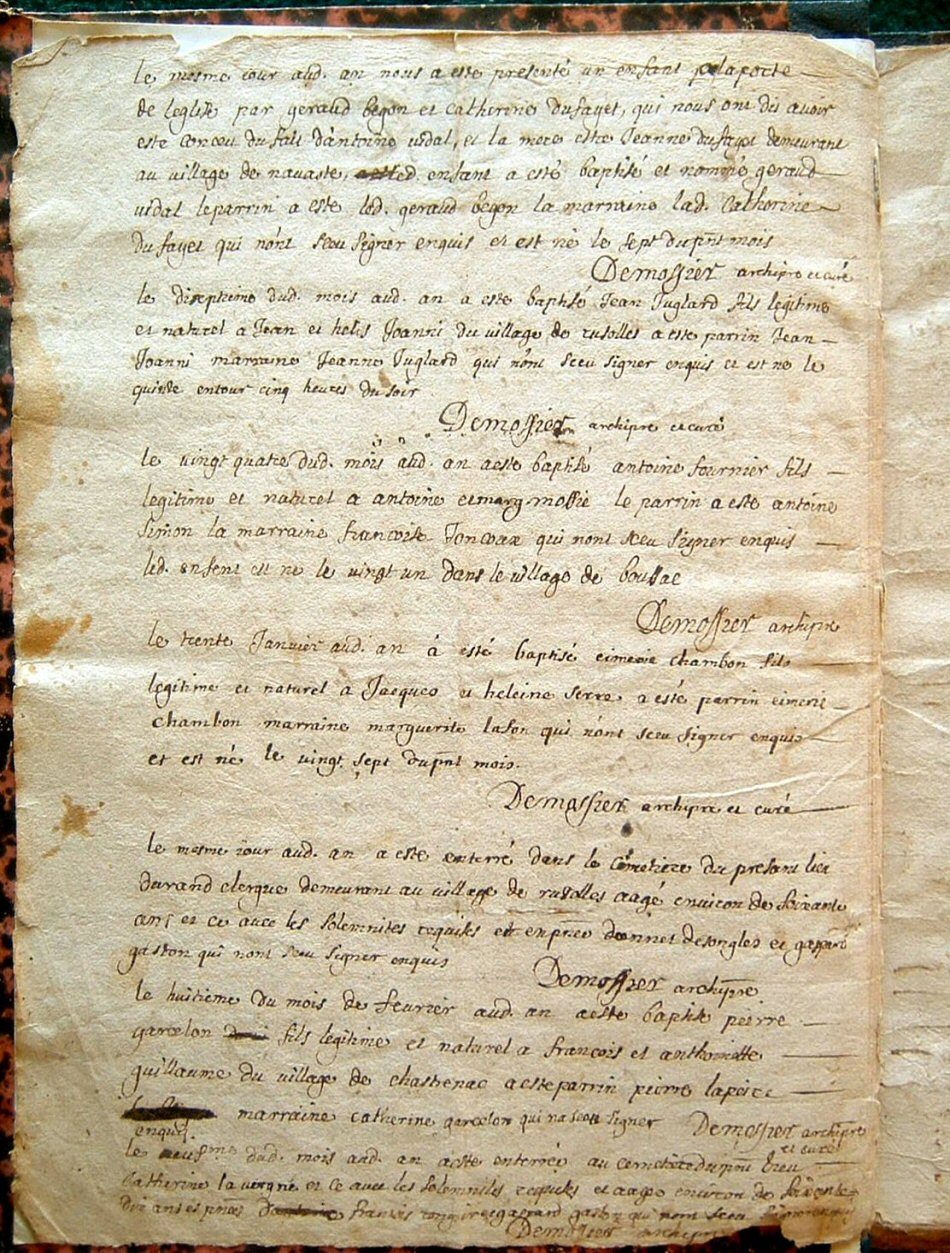 le mesme jour aud. an nous a esté presenté un enfant a la porte
de leglise par geraud begon et Catherine dufayet, qui nous ont dit avoir
esté conceu du fait d'antoine vidal, et la mere estre Jeanne dufayet demeurant
au village de navaste, led. enfant a esté baptisé et nommé geraud
vidal le parrin a esté led. geraud begon la marraine lad. Catherine
dufayet qui n'ont sceu signer enquis et est né le sept du pnt mois
Demossier archipre et curé
le diseptieme dud. mois aud. an a esté baptisé Jean Juglard fils legitime
et naturel a Jean et helis Joanni du village de rusolles a esté parrin Jean
Joanni marraine Jeanne Juglard qui n'ont sceu signer enquis et est né le
quinze entour cinq heures du soir
Demossier archipre et curé
le vingt quatre dud. mois aud. an a esté baptisé antoine fournier fils
legitime et naturel a antoine et marg mossie le parrin a esté antoine
Simon la marraine francoise qui nont sceu signer enquis
led. enfent est ne le vingt un dans le village de boussac
Demossier archipre
le trente Janvier aud. an à esté baptisé eimerie chambon fils
legitime et naturel a Jacques et heleine serre a esté parrin eimerie
chambon marraine marguerite lason qui n'ont sceu signer enquis
et est né le vingt sept du pnt mois.
Demossier archipre et curé
le mesme jour aud. an a esté enterré dans le cemetiere du presant lieu
durand clerque demeurant au village de rusolles aagé environ de soixante
ans et ce avec les solemnites requises et en pnce donnet desongles et gaspard
gaston qui nont sceu signer enquis
Demossier archipre
le huitieme du mois de fevrier aud. an a esté baptisé peirre
garcelon fils legitime et naturel a francois et anthoinette
guillaume du village de chastenac a esté parrin pierre
marraine catherine garcelon qui na sceu signer Demossier archipre
enquis et curé
le dud. mois aud. an a esté enterrée au cemetiere du pnt lieu
Catherine la vergne et ce avec les solemnites requises et aagee environ de soixente
dix ans es pnces francois et gaspard gaston qui nont sceu signer enquis
Demossier archipre